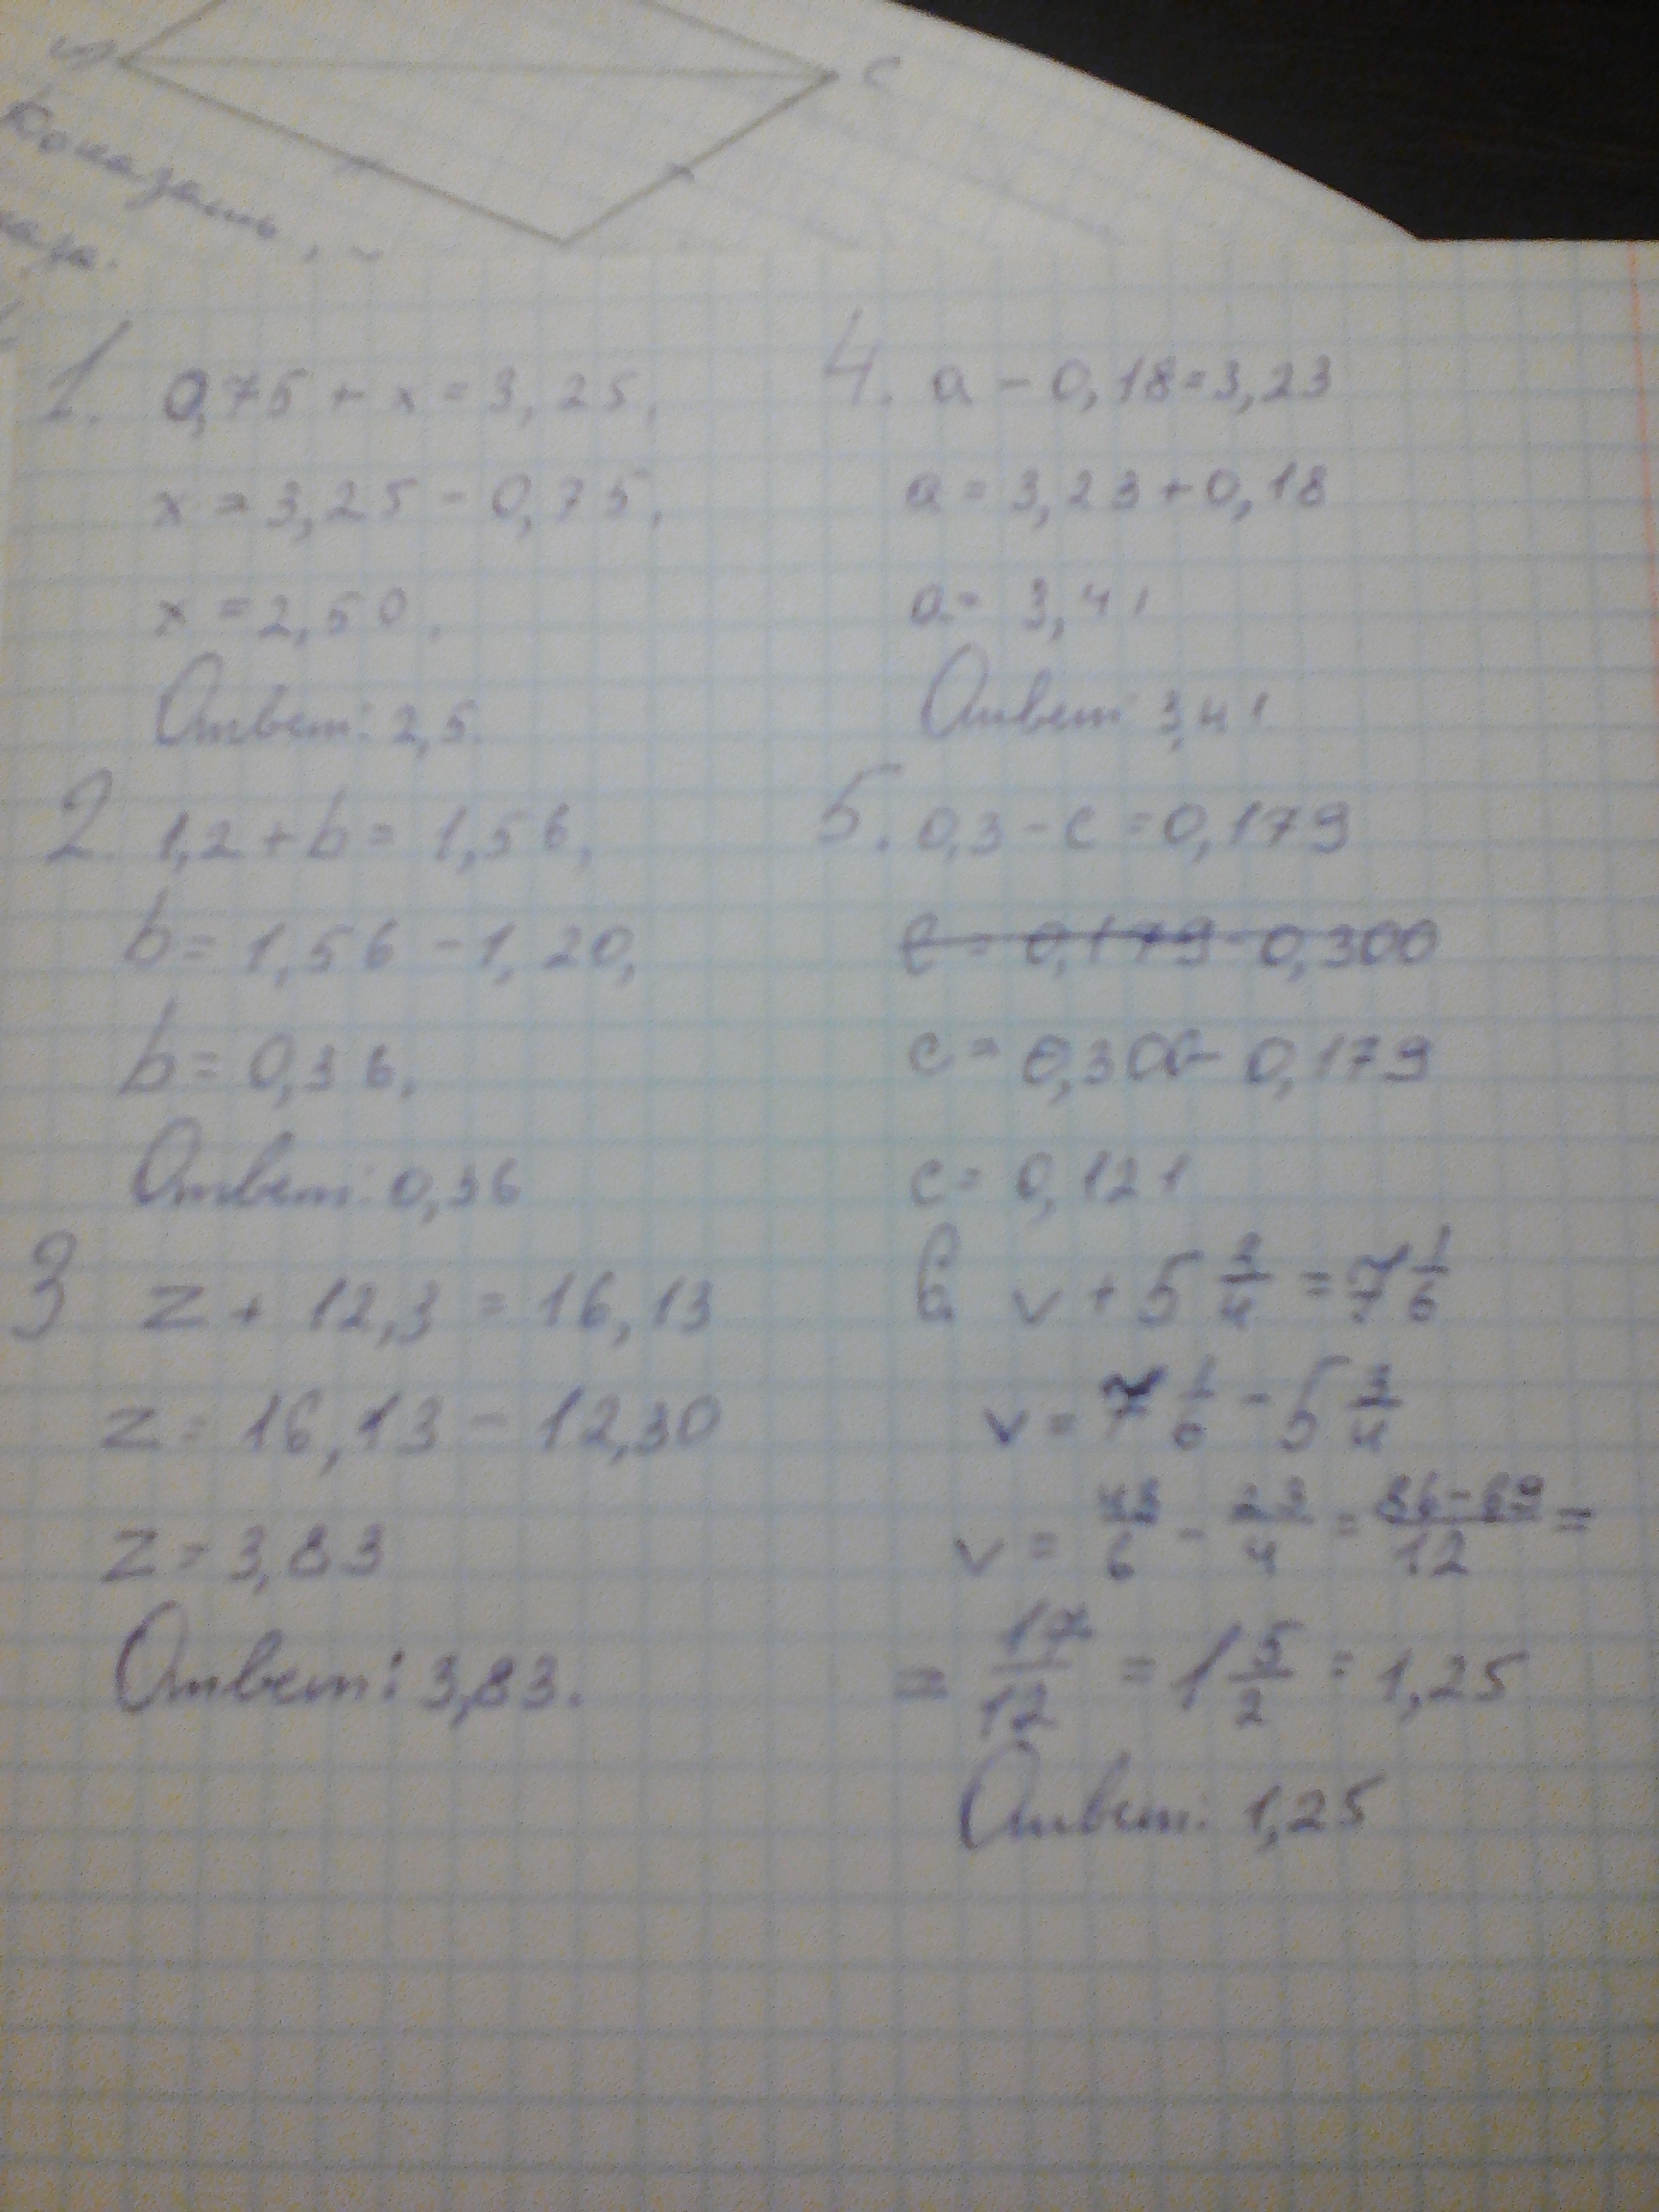 C
Доказать,
1. 0,75 + x = 3,25,
x = 3,25 - 0,75,
x = 2,50.
Ответ: 2,5.
2. 1,2 + b = 1,56,
b = 1,56 - 1,20,
b = 0,36.
Ответ: 0,36
3 z + 12,3 = 16,13
z = 16,13 - 12,30
z = 3,83
Ответ: 3,83.
4. a - 0,18 = 3,23
a = 3,23 + 0,18
a = 3,41
Ответ: 3,41
5. 0,3 - c = 0,179
c = 0,179 - 0,300
c = 0,300 - 0,179
c = 0,121
6. v + 5 3/4 = 7 1/6
v = 7 1/6 - 5 3/4
v = 43/6 - 23/4 = 86-69/12 =
= 17/12 = 1 5/2 = 1,25
Ответ: 1,25